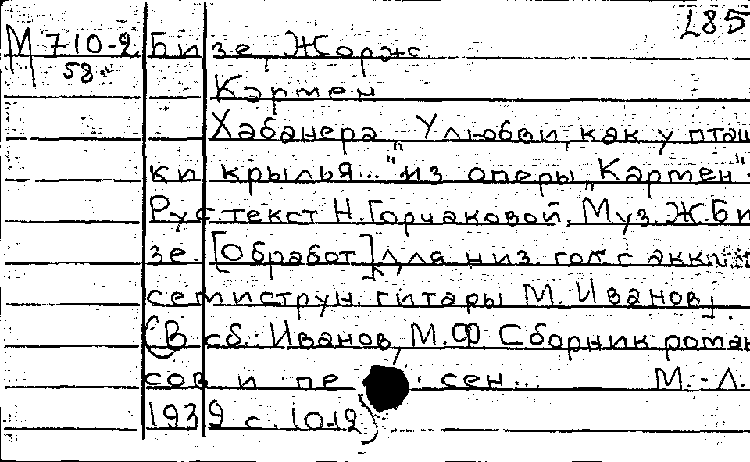 L85
М 710-2 Бизе, Жорж.
58
Кармен
Хабанера „У любви, как у пташ
ки крылья..." из оперы „Кармен"
Рус. текст Н. Горчаковой, Муз. Ж. Би
зе. [Обработ] для низ. гол. с
семиструн. гитары М. Иванов
(В сб.: Иванов, М.Ф. Сборник роман
сов и песен... М.-Л.
1939 с. 10-12)